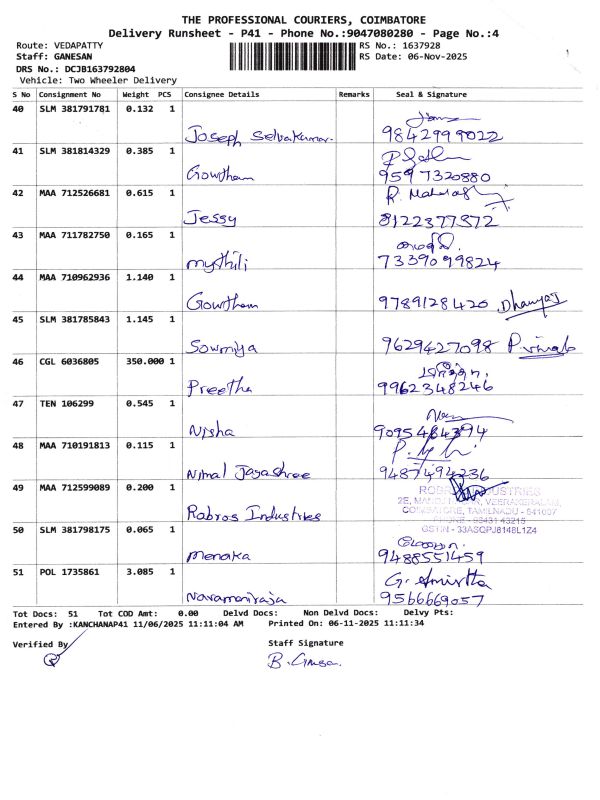 THE PROFESSIONAL COURIERS, COIMBATORE
Delivery Runsheet - P41 - Phone No.:9047080280 - Page No.:4
Route: VEDAPATTY RS No.: 1637928
Staff: GANESAN RS Date: 06-Nov-2025
DRS No.: DCJB163792804
Vehicle: Two Wheeler Delivery
S No Consignment No Weight PCS Consignee Details Remarks Seal & Signature
40 SLM 381791781 0.132 1
Joseph Selvakumar. 9842999022
41 SLM 381814329 0.385 1
Gowtham 9597320880
42 MAA 712526681 0.615 1
Jessy 8122377372
43 MAA 711782750 0.165 1
Mythili 7339099824
44 MAA 710962936 1.140 1
Gowtham 9789128420 Dhanyaj
45 SLM 381785843 1.145 1
Sowmiya 9629427098
46 CGL 6036805 350.000 1
Preetha 9962348246
47 TEN 106299 0.545 1
Nisha 9095484394
48 MAA 710191813 0.115 1
Nimal Jayashree 9487494236
49 MAA 712599089 0.200 1
2E, VEERAKERALAM,
COIMBATORE, TAMILNADU - 641007
PHONE - 98431 43215
Rabros Industries GSTIN - 33ASQPJ8148L1Z4
50 SLM 381798175 0.065 1
Menaka 9488551459
51 POL 1735861 3.085 1 G. Amirtha
Navamaniraja 9566669057
Tot Docs: 51 Tot COD Amt: 0.00 Delvd Docs: Non Delvd Docs: Delvy Pts:
Entered By :KANCHANAP41 11/06/2025 11:11:04 AM Printed On: 06-11-2025 11:11:34
Verified By Staff Signature